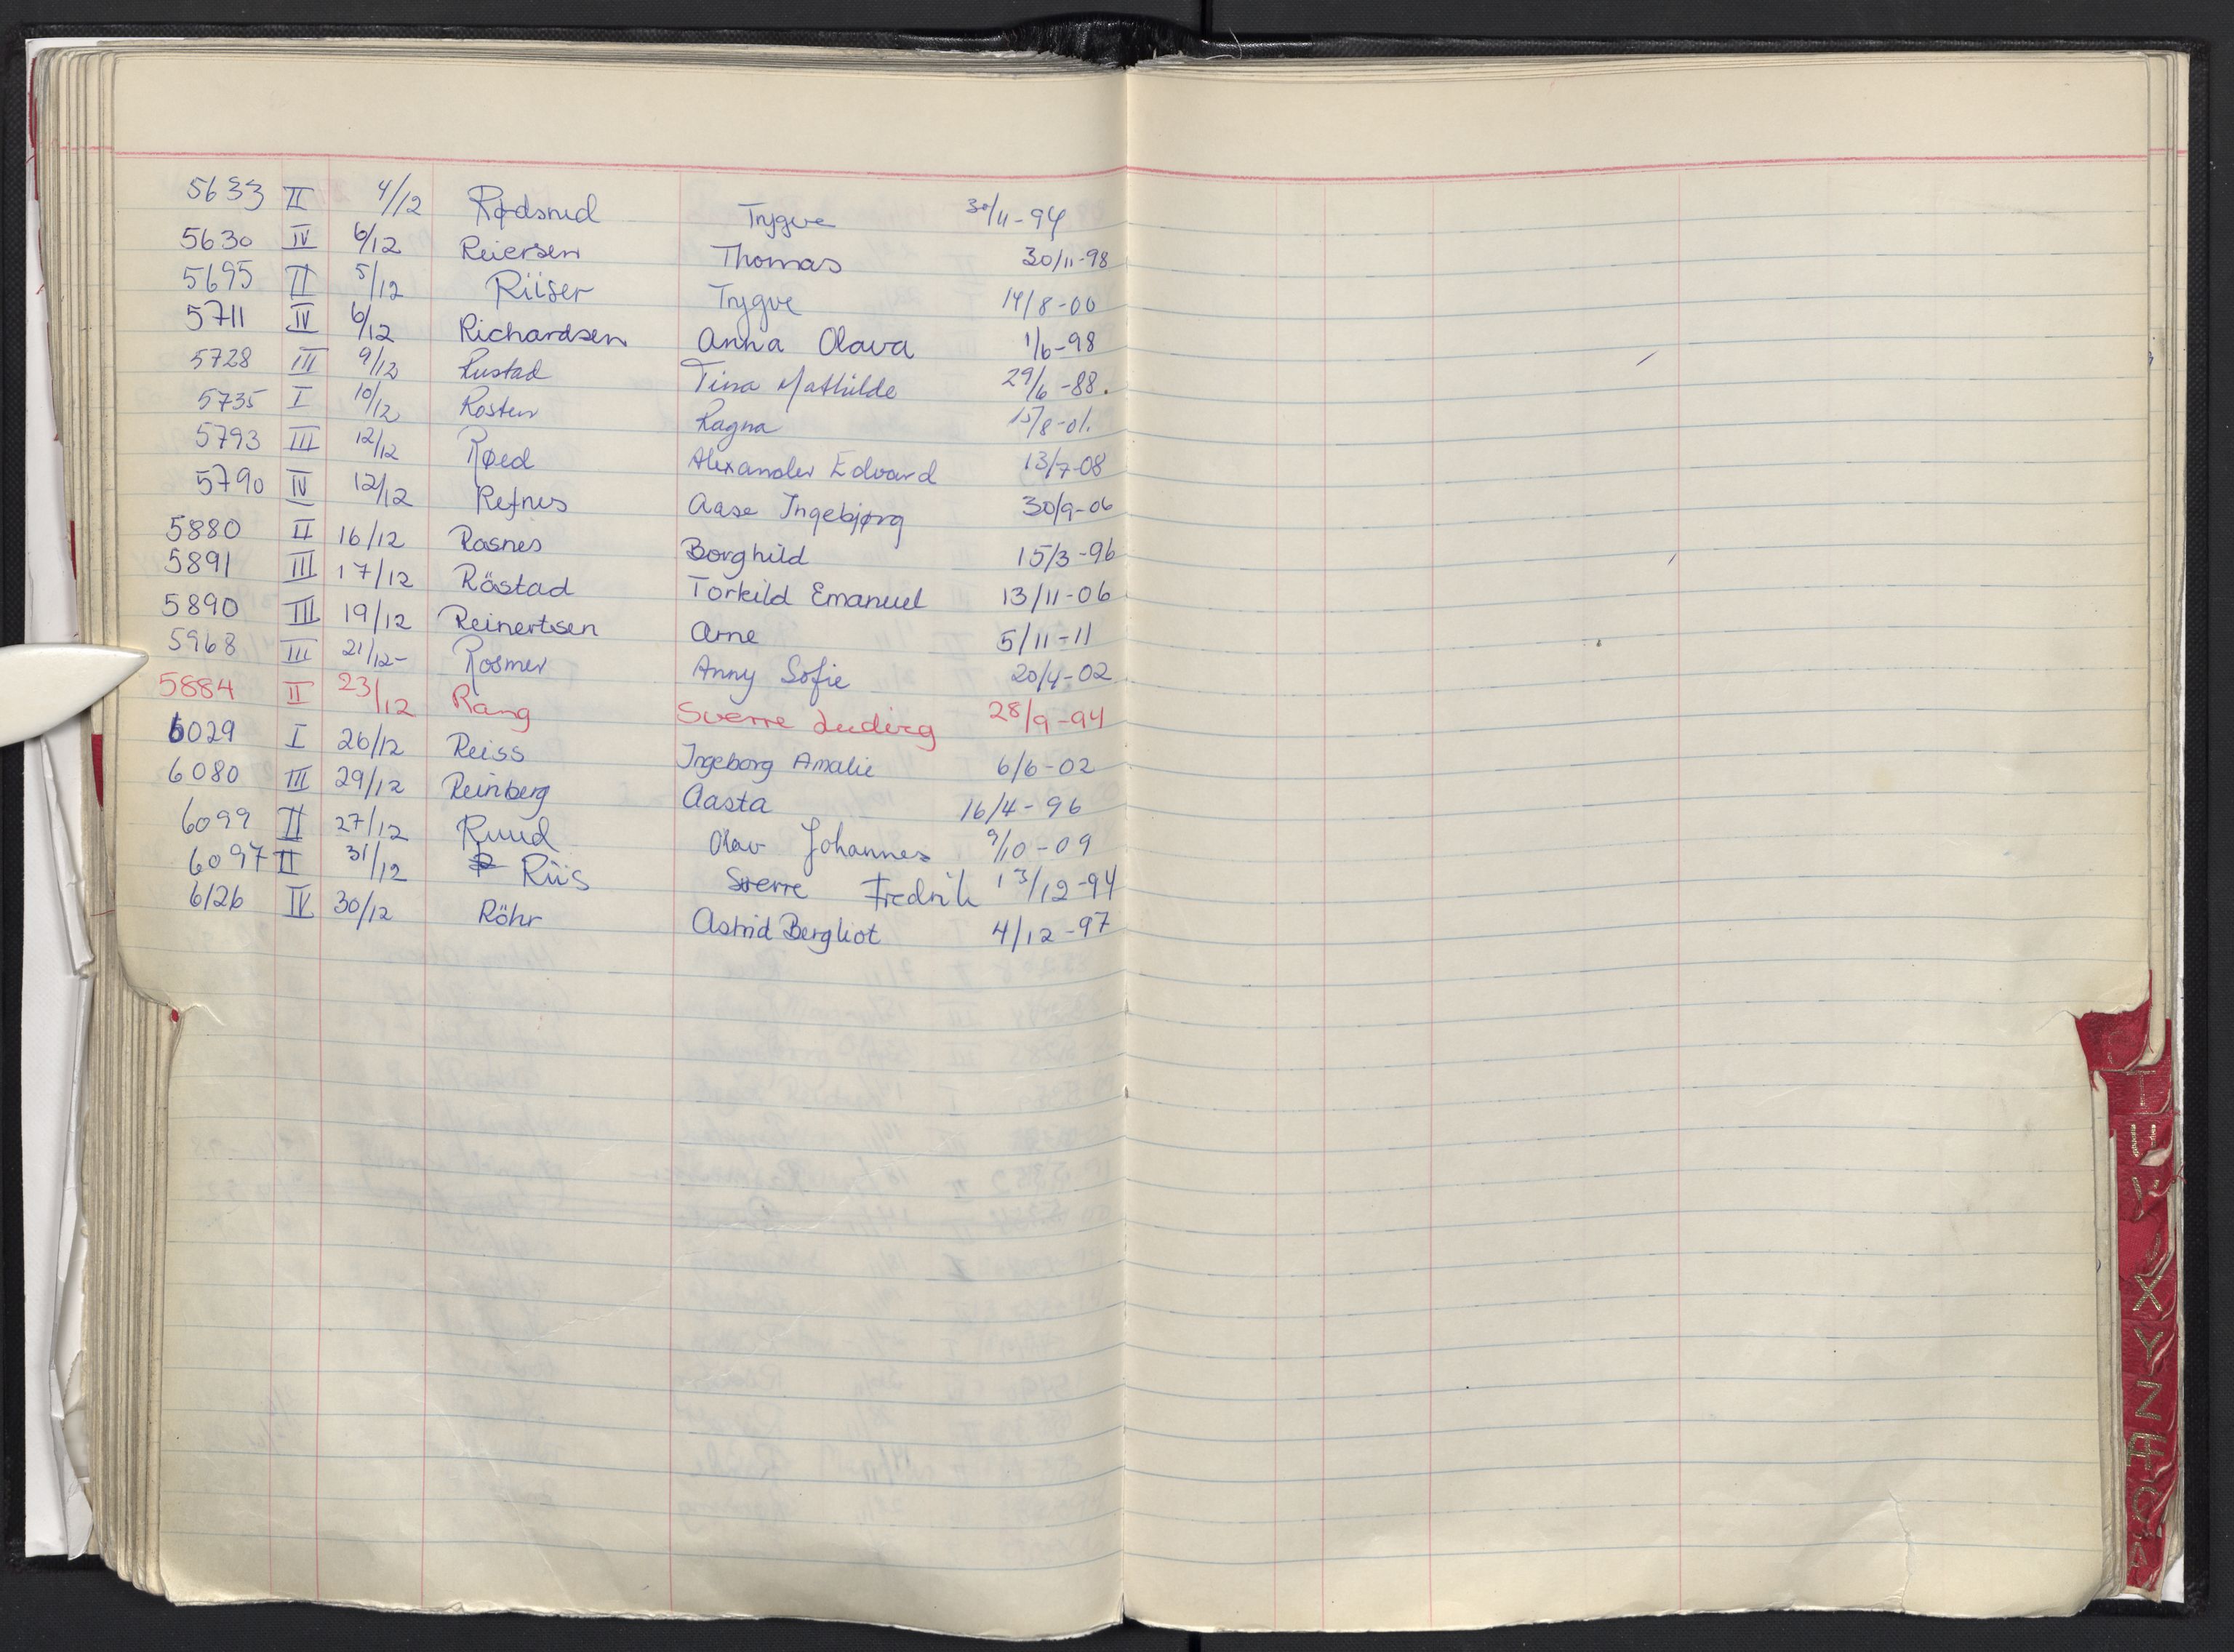 5633 II 4/12 Rødsrud Trygve 30/11-94
5630 IV 6/12 Reiersen Thomas 30/11-98
5695 II 5/12 Riiser Trygve 14/8-00
5711 IV 6/12 Richardsen Anna Olava 1/6-98
5728 III 9/12 Rustad Tina Mathilde 29/6-88.
5735 I 10/12 Rosten Ragna 15/8-01.
5793 III 12/12 Røed Alexander Edvard 13/7-08
5790 IV 12/12 Refnes Aase Ingebjørg 30/9-06
5880 II 16/12 Rasnes Borghild 15/3-96
5891 III 17/12 Röstad Torkild Emanuel 13/11-06
5890 III 19/12 Reinertsen Arne 5/11-11
5968 III 21/12- Rosmer Anny Sofie 20/4-02
5884 II 23/12 Rang Sverre Ludvig 28/9-94
6029 I 26/12 Reiss Ingeborg Amalie 6/6-02
6080 III 29/12 Reinberg Aasta 16/4-96
6099 II 27/12 Ruud Olav Johannes 9/10-09
6097 II 31/12 Riis Sverre Fredrik 13/12-94
6126 IV 30/12 Röhr Astrid Bergliot 4/12-97
T
U
V
X
Y
Z
Æ
Ø